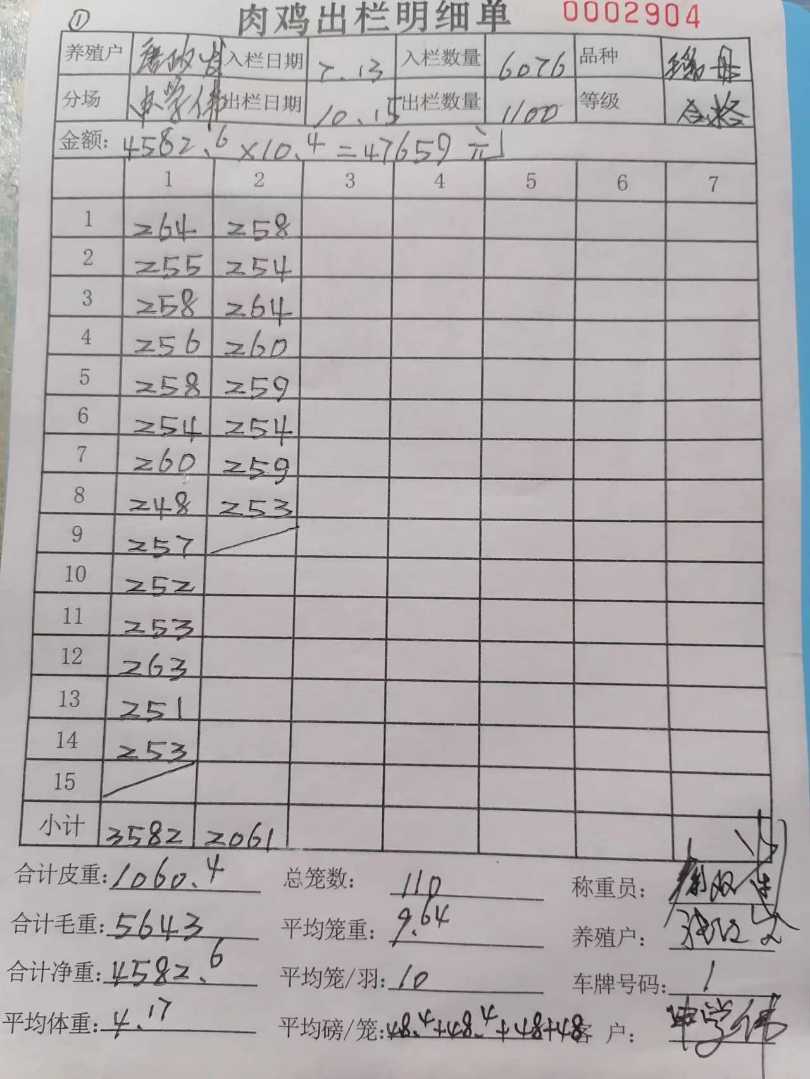 ① 肉鸡出栏明细单 0002904
养殖户 入栏日期 7.13 入栏数量 6076 品种
分场 申学伟 出栏日期 10.15 出栏数量 1100 等级 合格
金额: 4582.6×10.4=47659元
1 2 3 4 5 6 7
1 264 258
2 255 254
3 258 264
4 256 260
5 258 259
6 254 254
7 260 259
8 248 253
9 257
10 252
11 253
12 263
13 251
14 253
15
小计 3582 2061
合计皮重: 1060.4 总笼数: 110 称重员:
合计毛重: 5643 平均笼重: 9.64 养殖户:
合计净重: 4582.6 平均笼/羽: 10 车牌号码: 1
平均体重: 4.17 平均磅/笼: 48.4+48.4+48+48 客 户: 申学伟